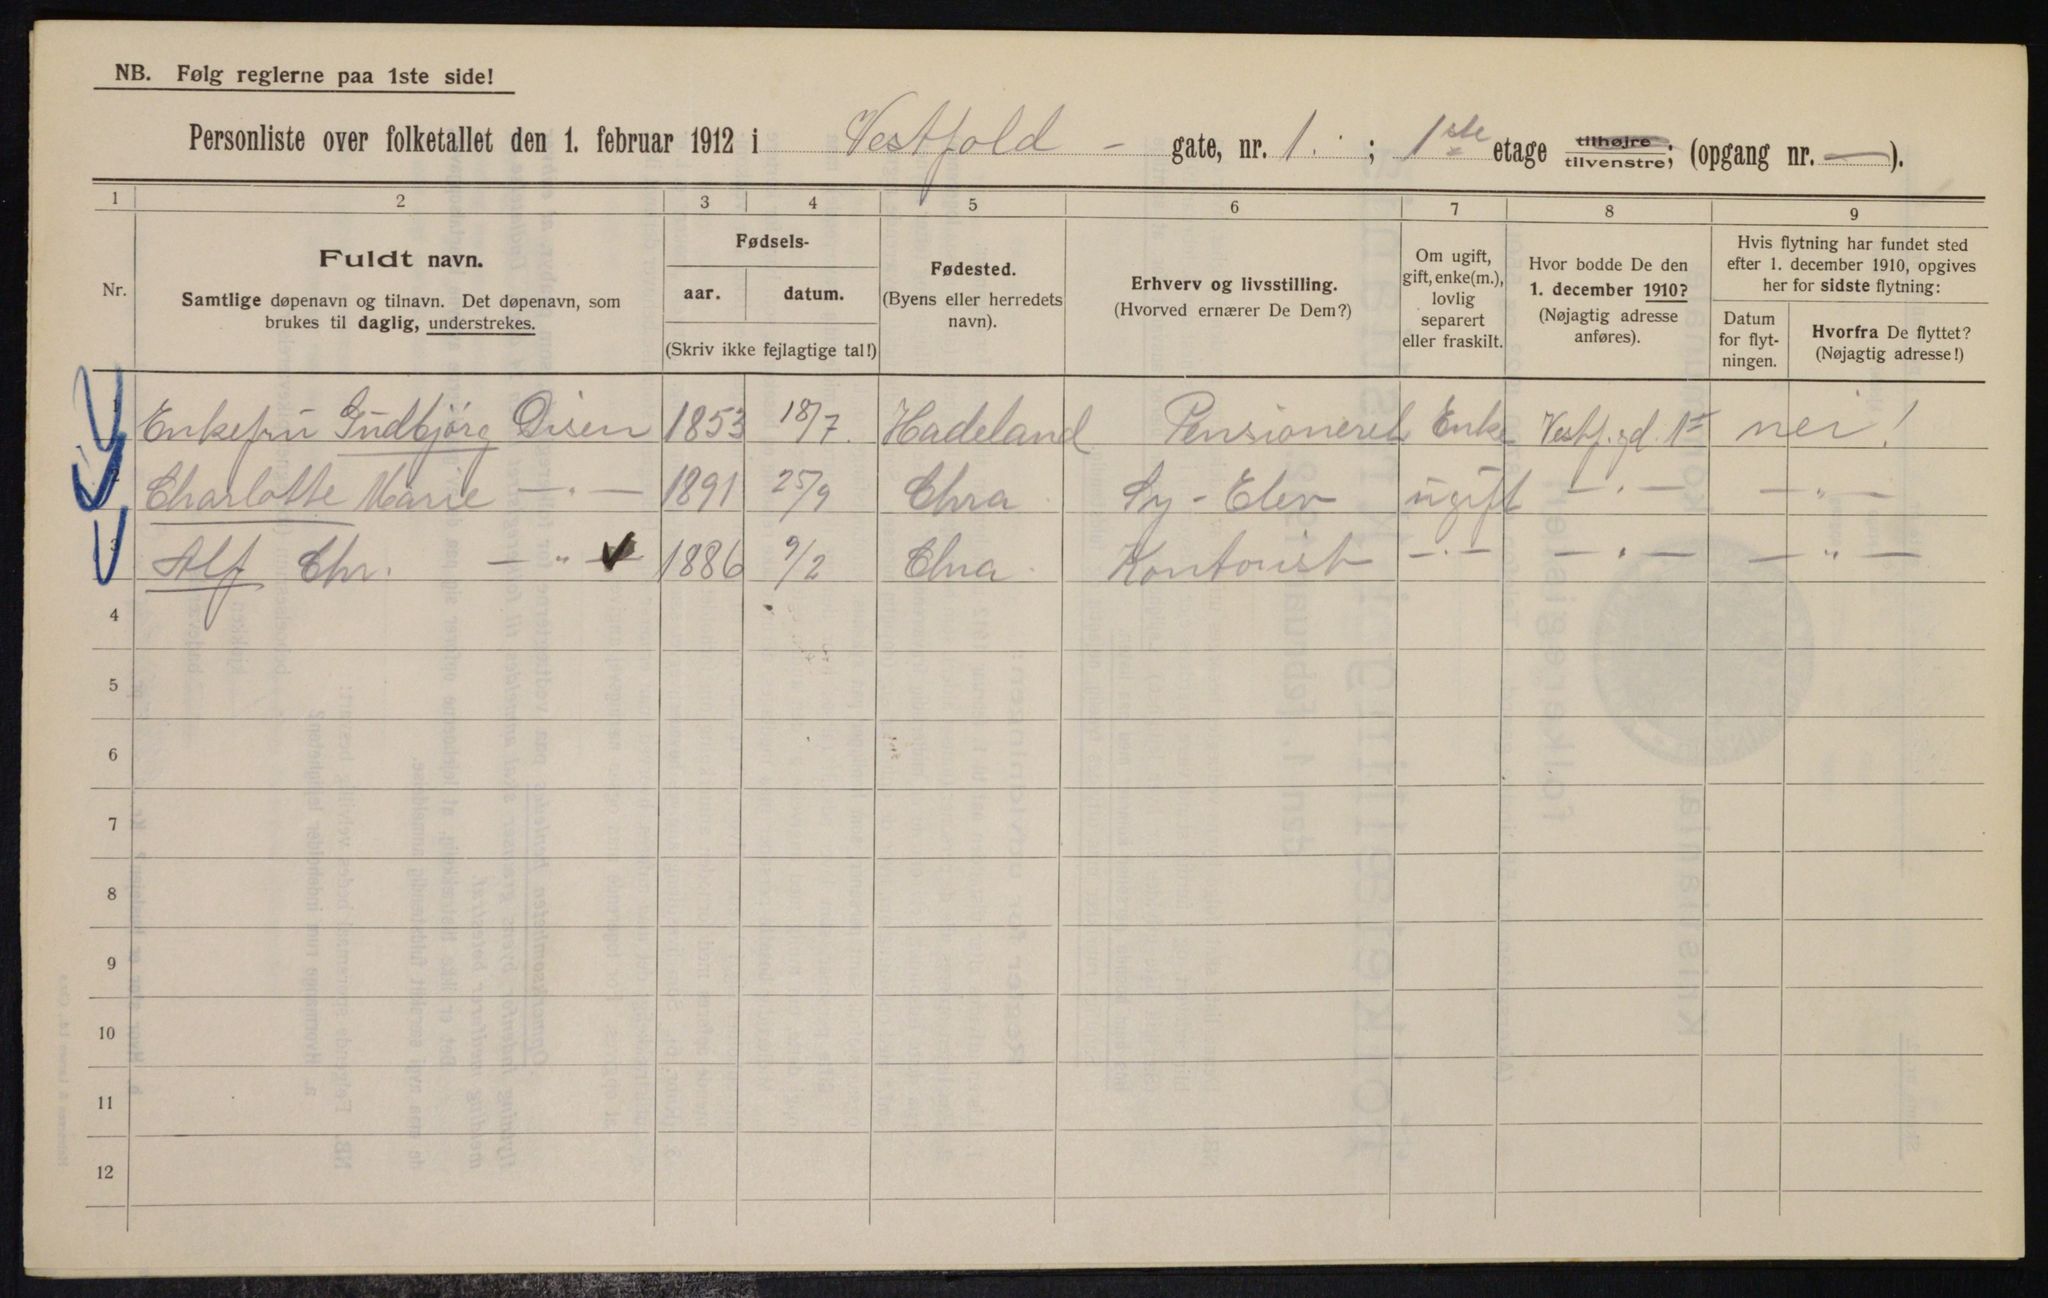 NB. Følg reglerne paa 1ste side!
Personliste over folketallet den 1. februar 1912 i Vestfold - gate, nr. 1. ; 1ste etage tilhøjre tilvenstre; (opgang nr. — ).
1 2 3 4 5 6 7 8 9
Nr.
Fuldt navn.
Samtlige døpenavn og tilnavn. Det døpenavn, som
brukes til daglig, understrekes.
Fødsels-
aar. datum.
(Skriv ikke fejlagtige tal!)
Fødested.
(Byens eller herredets
navn).
Erhverv og livsstilling.
(Hvorved ernærer De Dem?)
Om ugift,
gift, enke(m.),
lovlig
separert
eller fraskilt.
Hvor bodde De den
1. december 1910?
(Nøjagtig adresse
anføres).
Hvis flytning har fundet sted
efter 1. december 1910, opgives
her for sidste flytning:
Datum
for flyt-
ningen.
Hvorfra De flyttet?
(Nøjagtig adresse!)
1 Enkefru Gudbjørg Disen 1853 18/7. Hadeland Pensioneret Enke Vestf. gd. 1st nei!
2 Charlotte Marie — " — 1891 25/9 Chra. Sy-Elev ugift — " — — " —
3 Alf Chr. — " — 1886 9/2 Chra. Kontorist — " — — " — — " —
4
5
6
7
8
9
10
11
12